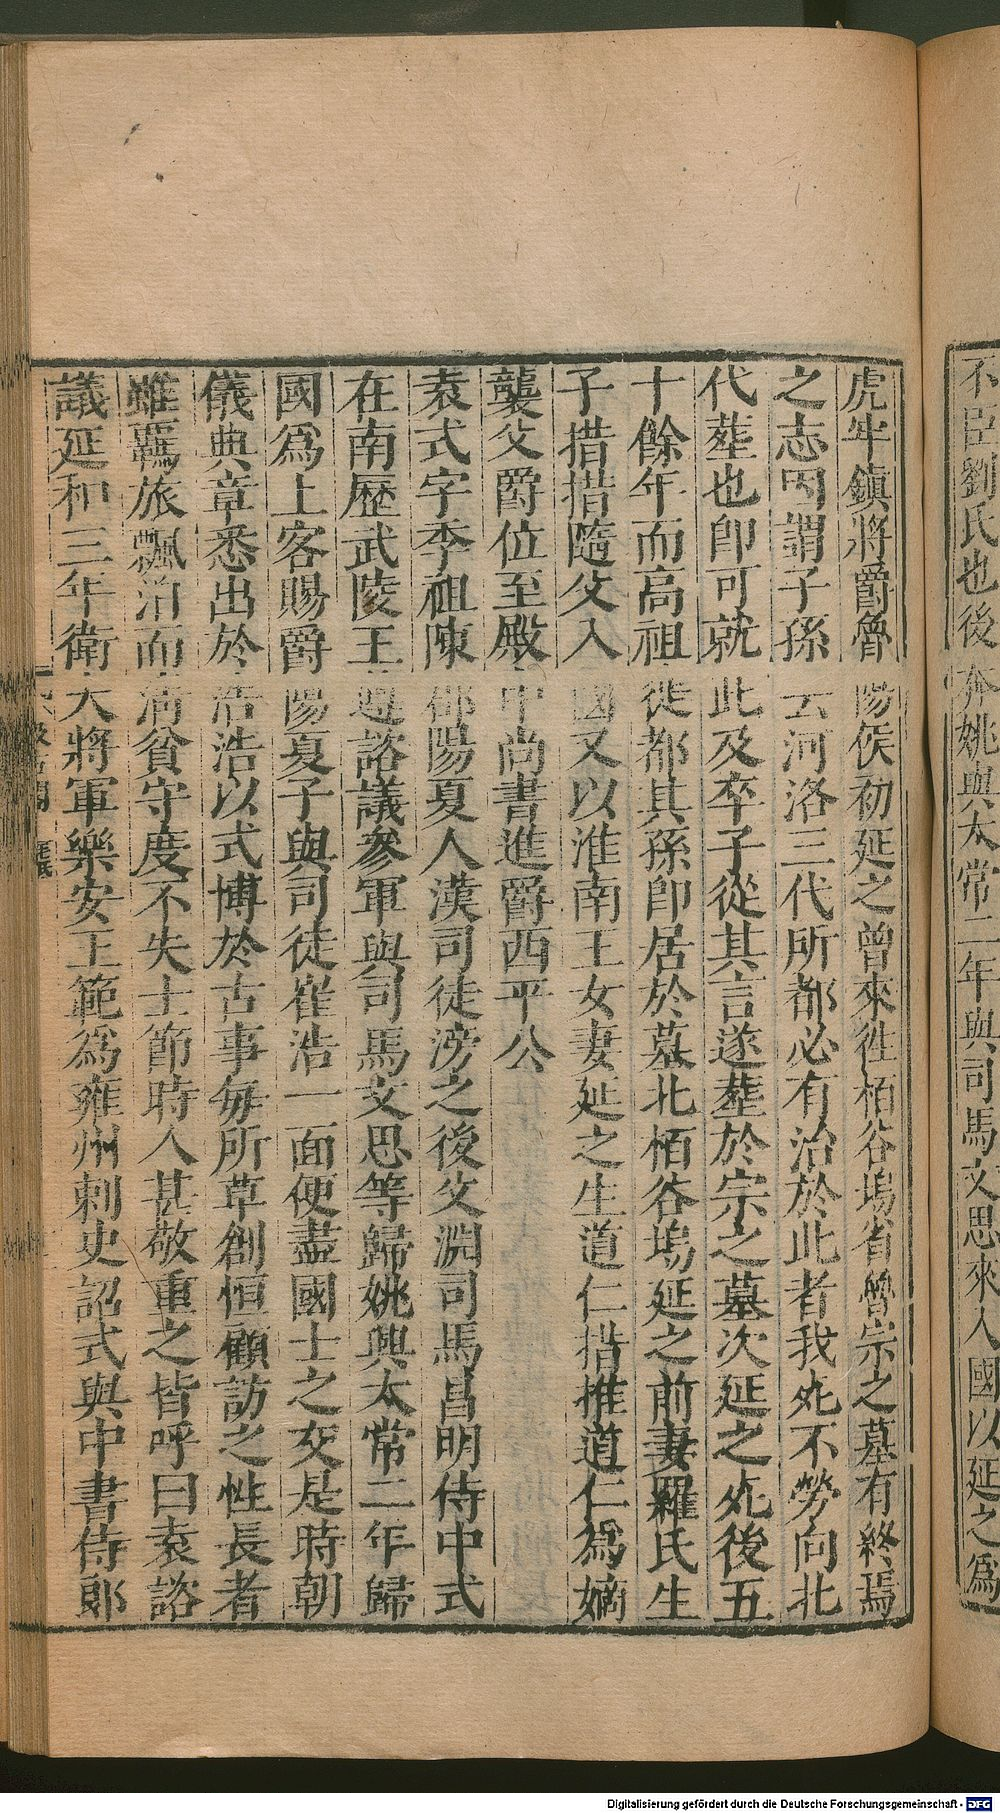 不臣劉氏也後奔姚興太常二年與司馬文思來入國以延之爲
虎牢鎮將爵魯陽侯初延之曾來徃栢谷塢省魯宗之墓有終焉
之志因謂子孫云河洛三代所都必有治於此者我死不勞向北
代葬也即可就此及卒子從其言遂葬於宗之墓次延之死後五
十餘年而高祖徙都其孫即居於墓北栢谷塢延之前妻羅氏生
子措措隨父入國又以淮南王女妻延之生道仁措推道仁爲嫡
襲父爵位至殿中尚書進爵西平公
袁式字季祖陳郡陽夏人漢司徒滂之後父淵司馬昌明侍中式
在南歷武陵王遵諮議參軍與司馬文思等歸姚興太常二年歸
國爲上客賜爵陽夏子與司徒崔浩一面便盡國士之交是時朝
儀典章悉出於浩浩以式博於古事每所草創恒顧訪之性長者
雖羈旅飄泊而淸貧守度不失士節時人甚敬重之皆呼曰袁諮
議延和三年衛大將軍樂安王範爲雍州刺史詔式與中書侍郎
Digitalisierung gefördert durch die Deutsche Forschungsgemeinschaft - DFG